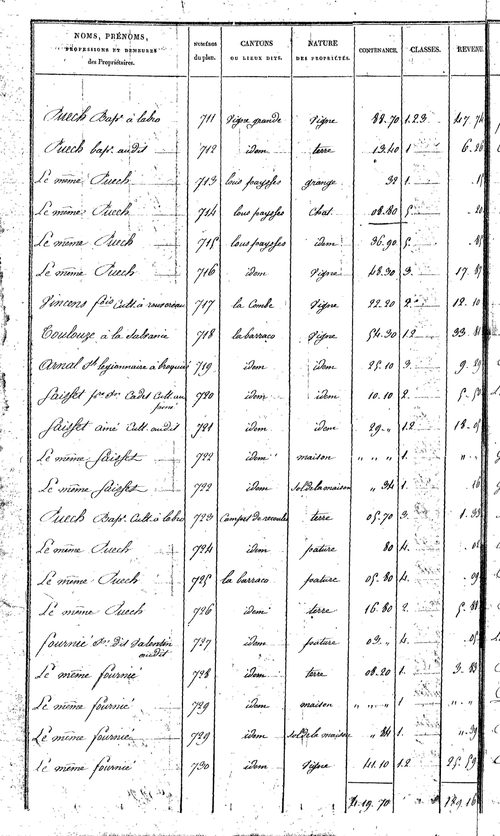 NOMS, PRÉNOMS, PROFESSIONS ET DEMEURES des Propriétaires. NUMÉROS du plan. CANTONS OU LIEUX DITS. NATURE DES PROPRIÉTÉS. CONTENANCE. CLASSES. REVENU
Puech Bapt. à labro 711 Vigne grande Vigne 88.70 1.2.3 47.74
Puech bapt. audit 712 idem terre 13.40 1 6.26
Le même Puech 713 lous paysses grange 32 1.
Le même Puech 714 lous paysses Chat. 08.80 5. 20
Le même Puech 715 lous paysses idem 36.90 5.
Le même Puech 716 idem Vigne 48.30 3. 17.87
Vincens Cult. à 717 la Combe Vigne 22.20 2. 12.10
Toulouze à la 718 la barraco Vigne 54.30 1.2 33.
Arnal légionnaire à 719 idem idem 25.10 3 9.29
Saisset Cadet Cult. au 720 idem idem 10.10 2. 5.
Saisset ainé Cult. audit 721 idem idem 29 „ 1.2 18.
Le même Saisset 722 idem maison „ „ „ 1. „
Le même Saisset 722 idem Sol de la maison „ 34 1. 16
Puech Bapt. Cult. à labro 723 Campet de terre 05.70 3. 1.33
Le même Puech 724 idem pature 80 4.
Le même Puech 725 la barraco pature 05.80 4.
Le même Puech 726 idem terre 16.80 2. 5.88
fournié dit Valentin audit 727 idem pature 03. „ 4. 05
Le même fournié 728 idem terre 08.20 1. 3.83
Le même fournié 729 idem maison „ „ „ 1 „
Le même fournié 729 idem Sol de la maison „ 84 1. „.39
Le même fournié 730 idem Vigne 41.10 1.2 25.59
4.19.70 189.16